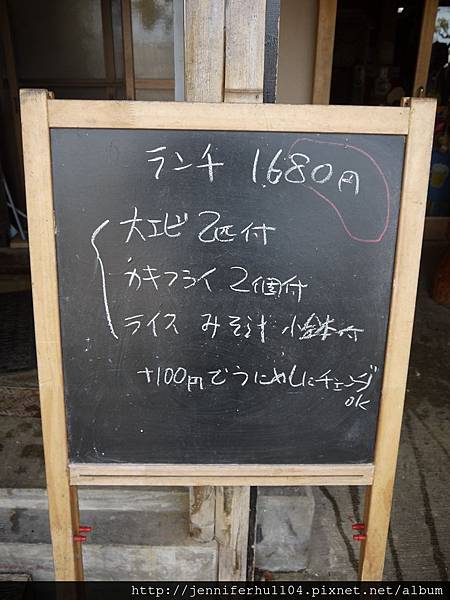 ランチ 1680円
大エビ 2匹付
カキフライ 2個付
ライス みそ汁 小鉢付
+100円でうにめしにチェンジ
OK
http://jenniferhu1104.pixnet.net/album